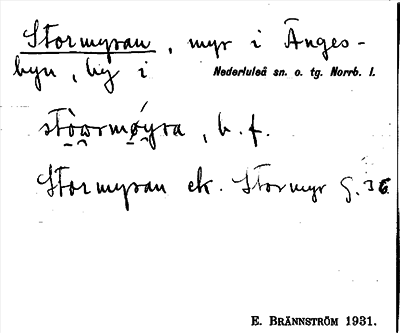 Stormyran, myr i Änges-
byn, by i Nederluleå sn. o. tg. Norrb. l.
stò̰a̯rmø̭̀yra, b. f.
Stormyran ek. Stormyr G. 36
E. BRÄNNSTRÖM 1931.